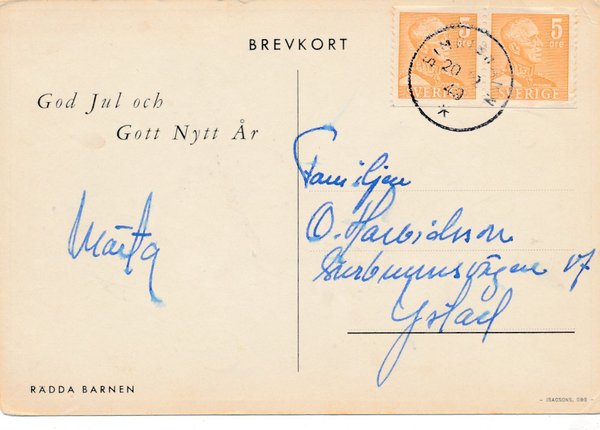 BREVKORT
5 5
öre öre
SVERIGE SVERIGE
20
49
God Jul och
Gott Nytt År
Märta
Familjen
O.
17
Ystad
RÄDDA BARNEN
- ISACSONS, GBG -